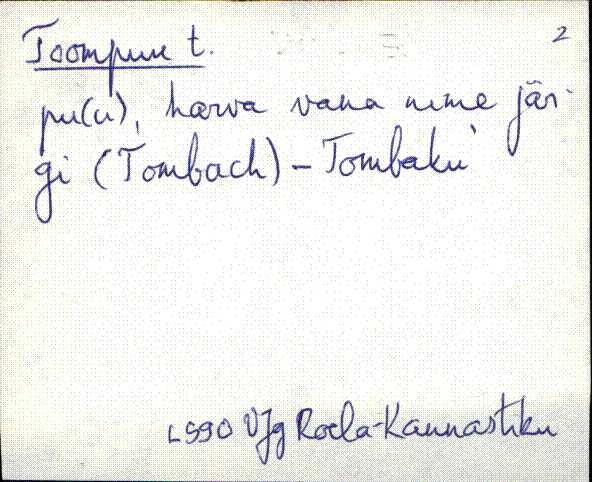 2
Toompuu t.
pu(u), harva vana nime jär-
gi (Tombach) – Tombaku
L590 VJg Roela-Kannastiku